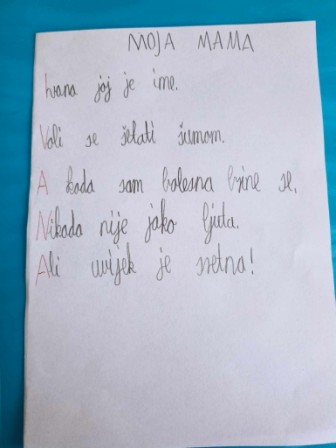 MOJA MAMA
Ivana joj je ime.
Voli se šetati šumom.
A kada sam bolesna brine se.
Nikada nije jako ljuta.
Ali uvijek je sretna!